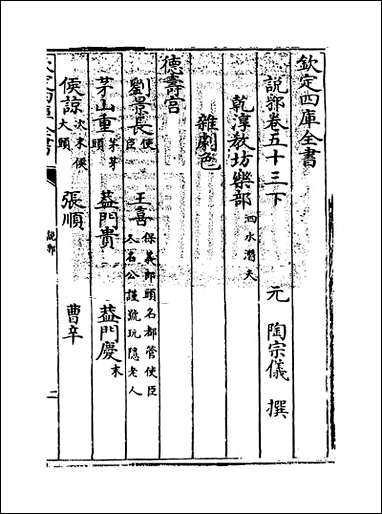 欽定四庫全書
說郛卷五十三下
元 陶宗儀 撰
乾淳敎坊樂部 泗水潛夫
雜劇色
德壽宮
劉景長 使臣 王喜 保義郎頭名都管使臣又名公謹號玩隱老人
茅山重 茅萃頭 葢門貴 葢門慶 末
侯諒 次末侯大頭 張順 曹辛
說郛
二